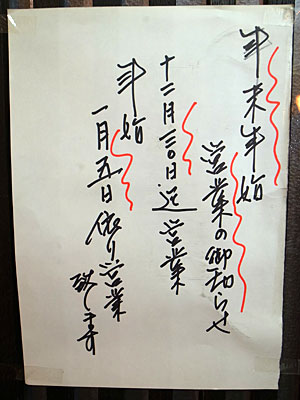 年末年始
営業の御知らせ
十二月三〇日迄営業
年始
一月五日依り営業
致します